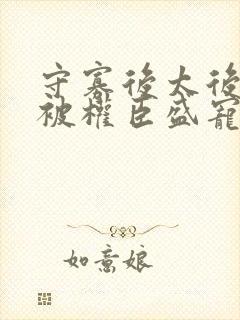 守寡後太後
被權臣盛寵
如意娘